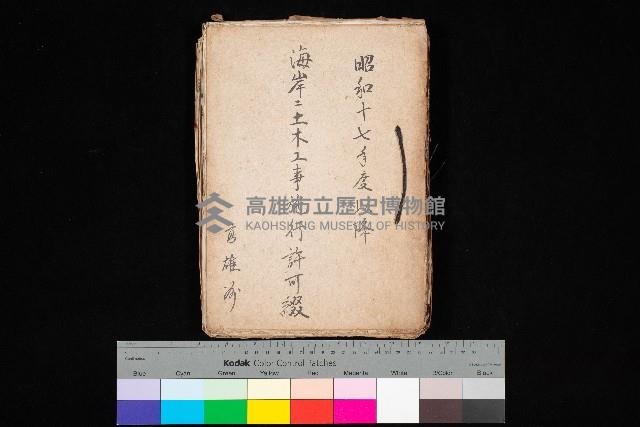 昭和十七年度以降
海岸ニ土木工事施行許可綴
高雄州
高雄市立歷史博物館
KAOHSIUNG MUSEUM OF HISTORY
Kodak Color Control Patches
Blue Cyan Green Yellow Red Magenta White 3/Color Black